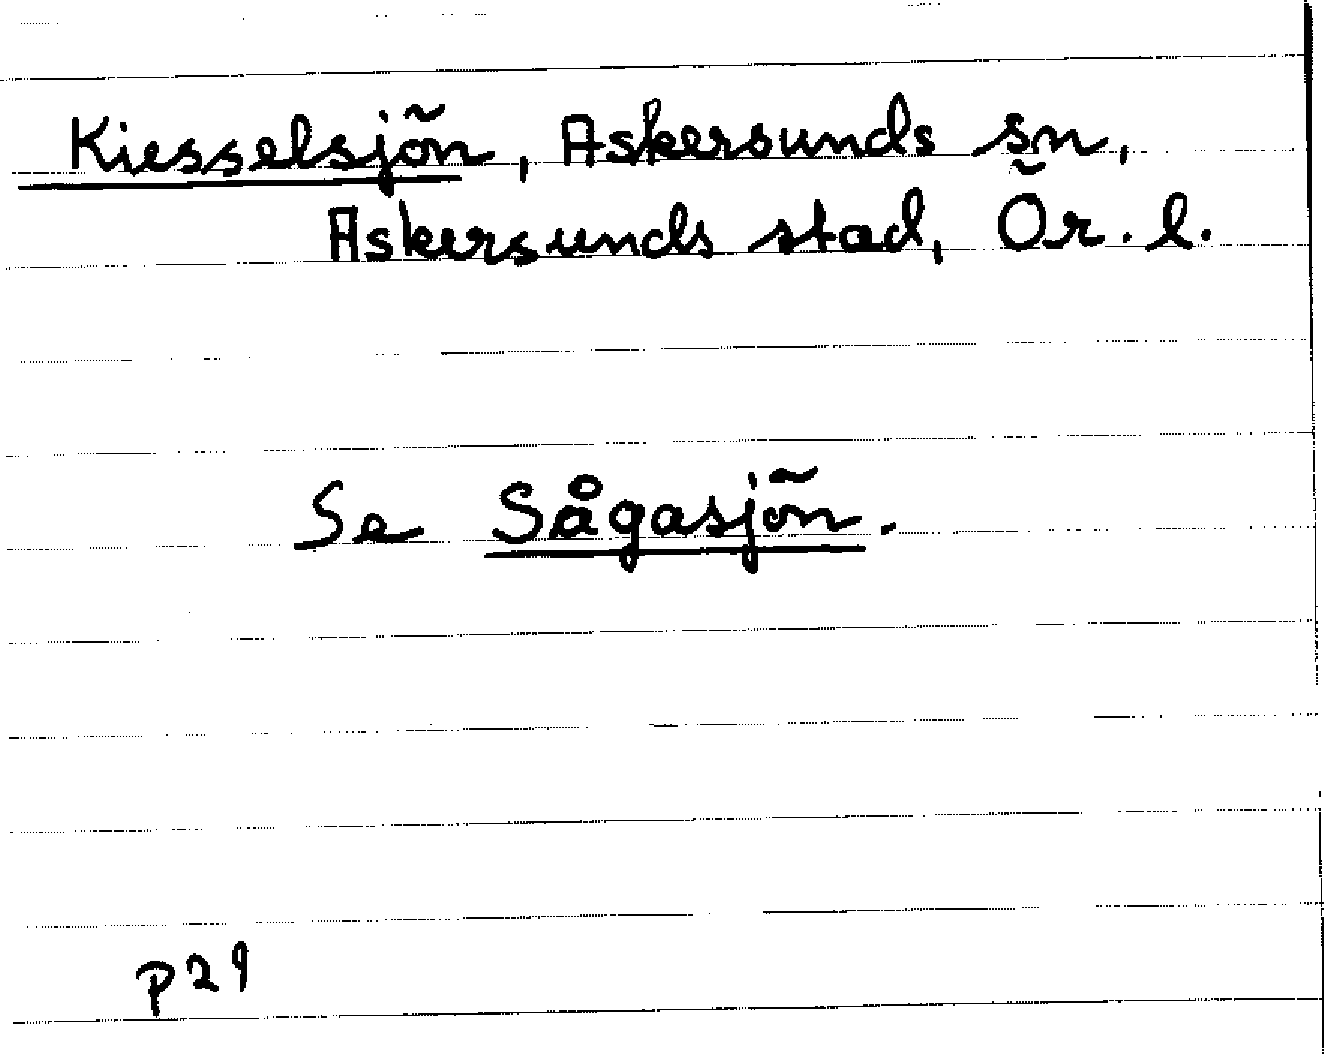 Kiesselsjön, Askersunds sn,
Askersunds stad, Ör. l.
Se Sågasjön.
p29